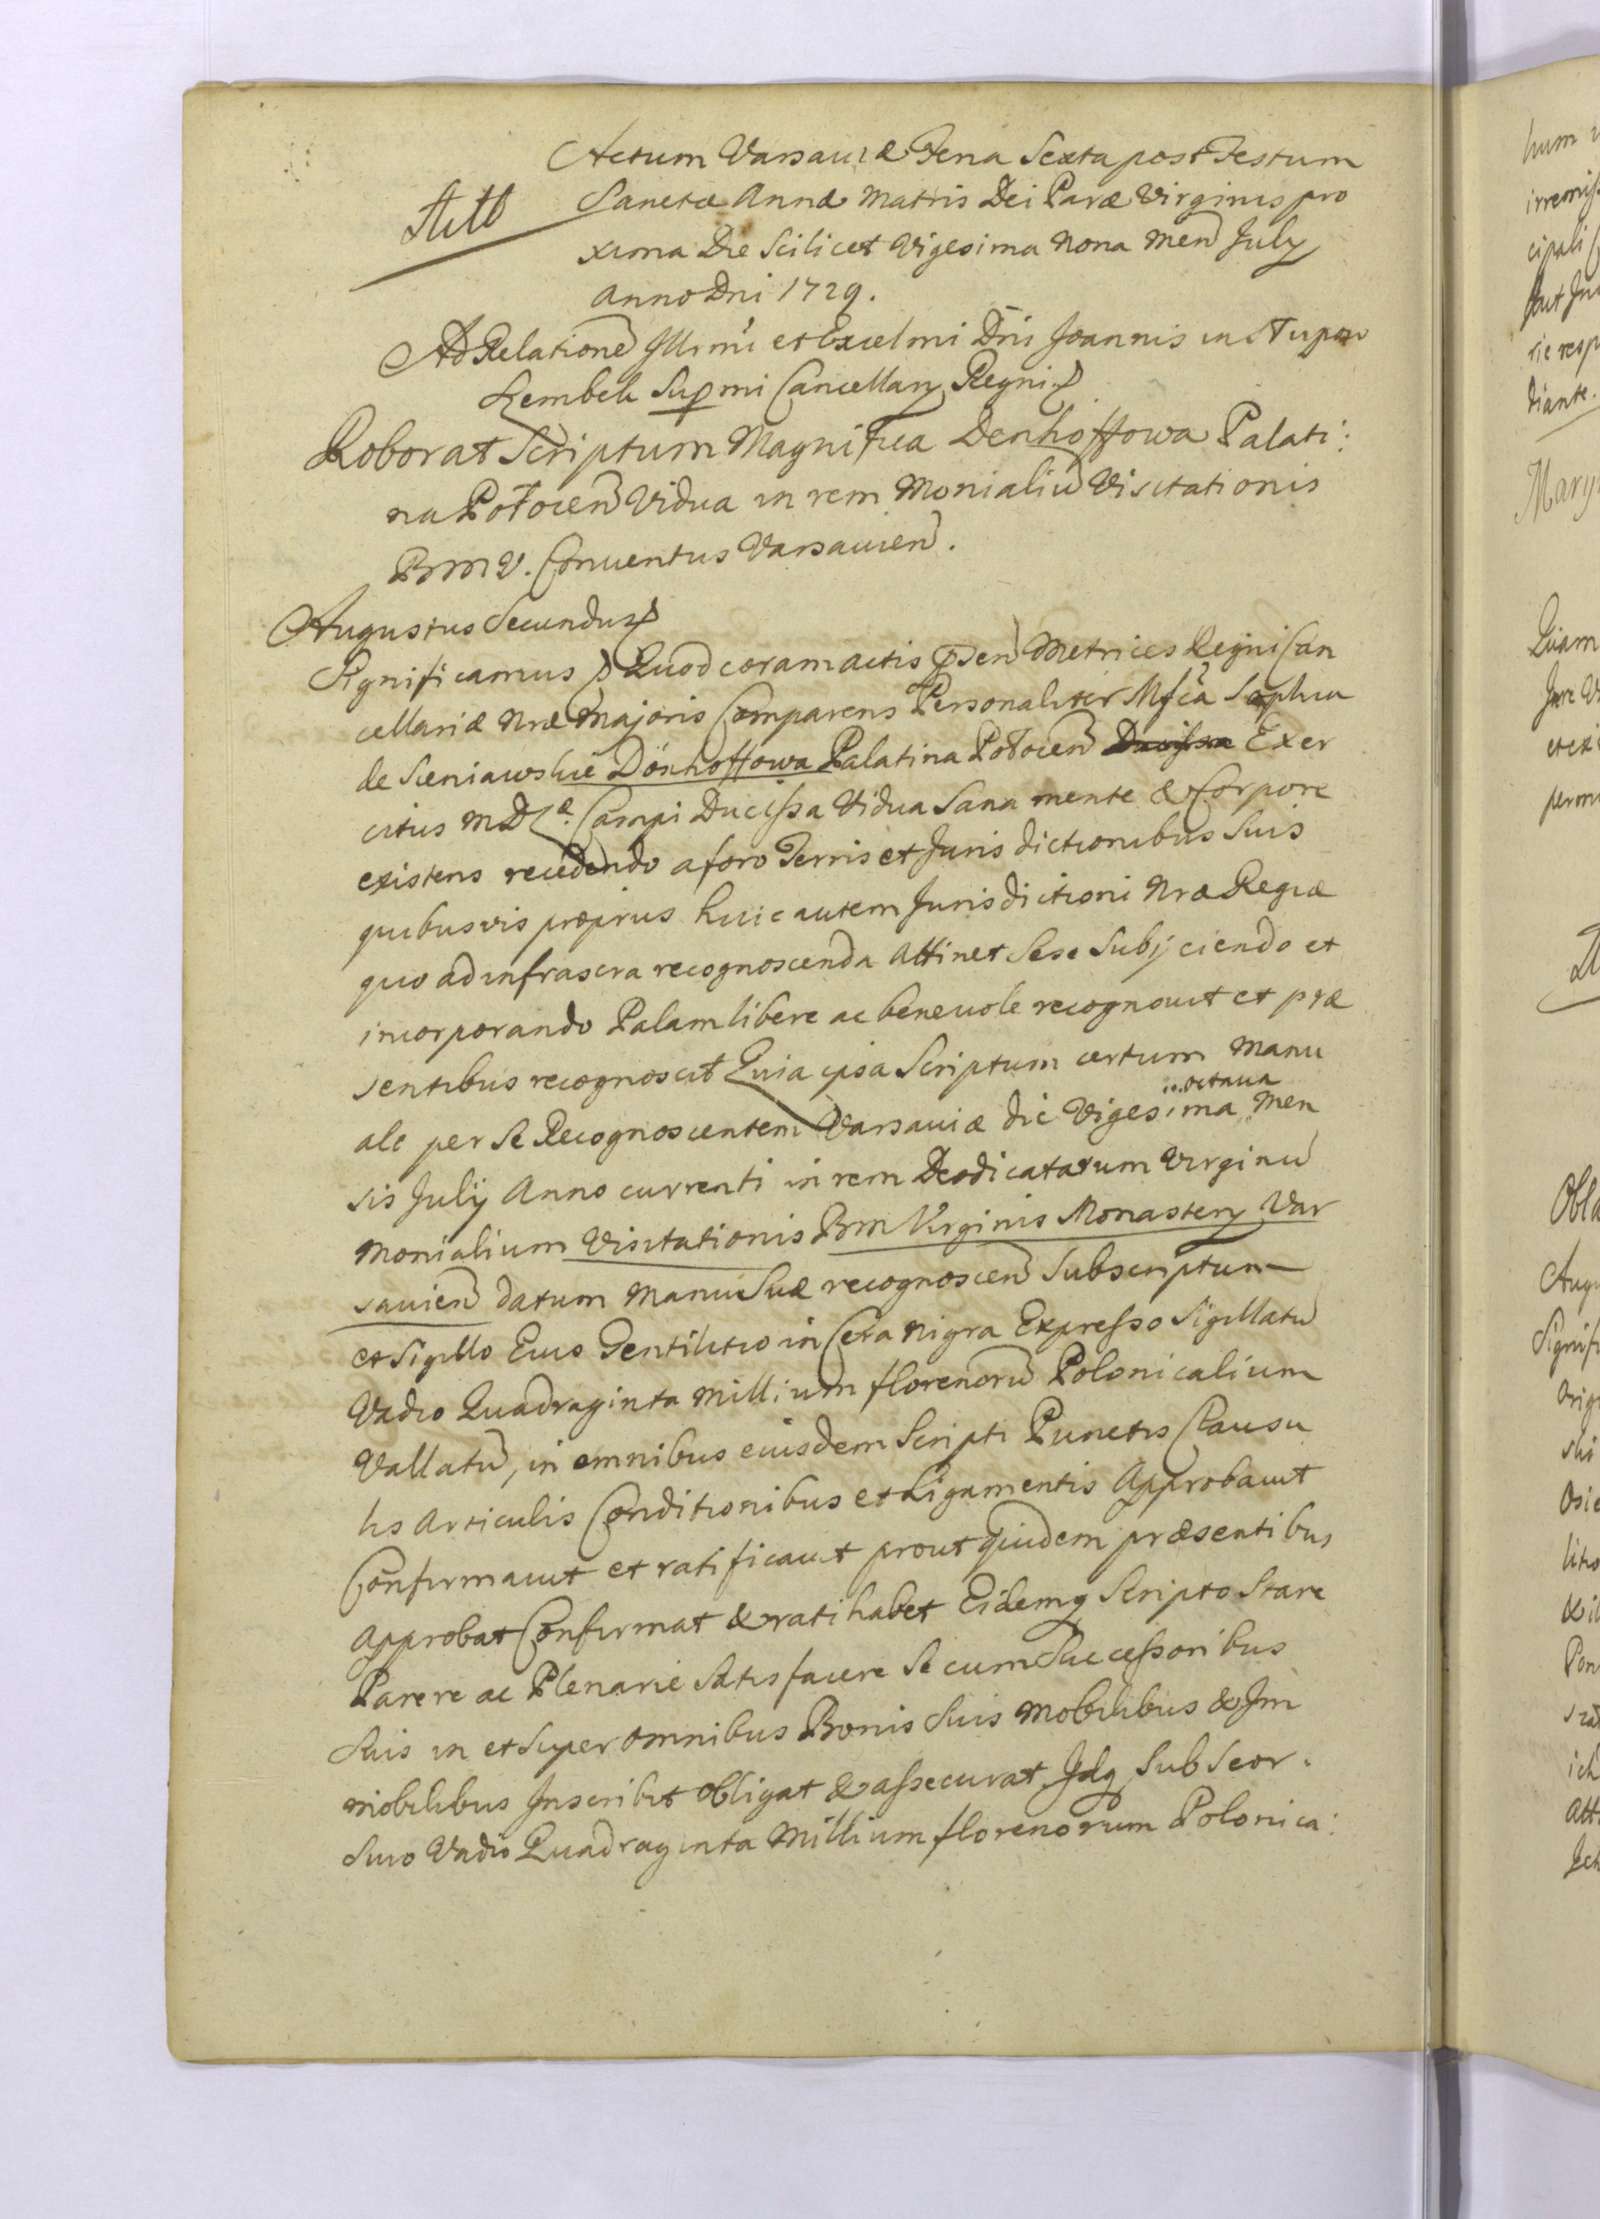 Actum Varsaviæ Feria Sexta post Festum
Sanctæ Annæ Matris Dei Paræ Virginis pro
xima Die Scilicet Vigesima Nona Men July
Anno Dni 1729.
Ad Relatione Illrmi et Excelmi Dni Joannis in Słupow
Szembek Supmi Cancellary Regni
Roborat Scriptum Magnifica Denhoffowa Palati:
na Połocen Vidua in rem Monialiu Visitationis
BMV. Conventus Varsavien.
Augustus Secundus
Significamus Quod coram actis psen Metrices Regni Can
cellariæ Nræ Majoris Comparens Personaliter Mfca Sophia
de Sieniawskie Dönhoffowa Palatina Połocen Ducissa Exer
citus M D L æ. Campi Ducissa Vidua Sana mente & Corpore
existens recedendo a foro Terris et Juris dictionibus Suis
quibusvis proprus huic autem Jurisdictioni Nræ Regiæ
quo ad infrascra recognoscenda Attinet Sese Subjciendo et
incorporando Palam libere ac benevole recognovit et præ
sentibus recognoscit Quia ipsa Scriptum certum Manu
ale per Se Recognoscentem Varsaviæ die Vigesima octava Men
sis Julij Anno currenti in rem Deodicatarum Virginu
Monialium Visitationis BM Virginis Monastery Var
savien datum Manu Suæ recognoscen Subscriptum
et Sigillo Eius Gentilitio in Cera Nigra Expresso Sigillatu
Vadio Quadraginta Millium florenoru Polonicalium
Vallatu, in omnibus eiusdem Scripti Punctis Clausu
lis Articulis Conditionibus et Ligamentis Approbavit
Confirmavit et ratificavit prout quidem præsentibus
Approbat Confirmat & ratihabet Eidemq Scripto Stare
Parere ac Plenarie Satisfacere Se cum Successoribus
Suis in et Super omnibus Bonis Suis Mobilibus & Im
mobilibus Inscribit obligat & assecurat Idq Sub Seor.
Suo Vadio Quadraginta Millium florenorum Polonica: